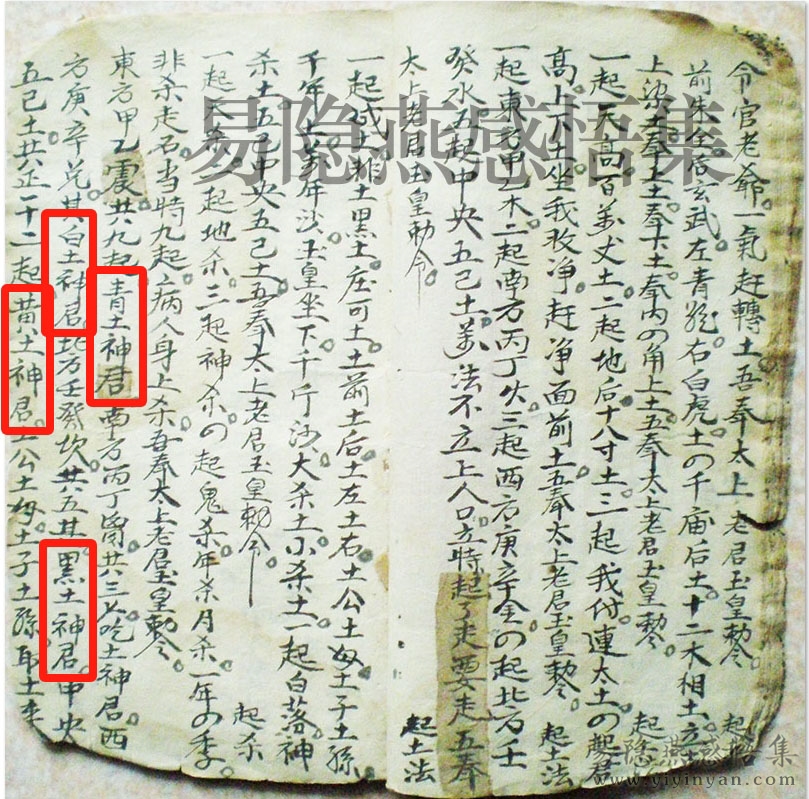 令官老爺一氣赶轉土吾奉太上老君玉皇勅令 起
前朱雀后玄武左青龍右白虎土の千庙后土十二木相土立
上梁土奉上土奉下土奉内の角上土五奉太上老君玉皇勅令 起
一起天高百萬丈土二起地后十八寸土三起我付連太土の
高上下土坐我改净赶净面前土五奉太上老君玉皇勅令 起土法
一起東方甲乙木二起南方丙丁火三起西方庚辛金の起北方壬
癸水五起中央五己土萬法不立上人口立時起了走要走五奉
太上老君玉皇勅令 起土法
一起成上非土黑土庄可土土前土后土左土右土公土母土子土孫
千年土萬年沙玉皇坐下千斤沙大杀土小杀土一起白落神
杀土五己中央五己土五奉太上老君玉皇勅令
一起天杀二起地杀三起神杀の起鬼杀年杀月杀一年の季 起杀
非杀走石当時九起病人身上杀吾奉太上老君玉皇勅令
東方甲乙震共九起青土神君南方丙丁 共三 土神君西
方庚辛兑其白土神君北方壬癸坎共五其黑土神君中央
五己土共正一十二起黄土神君土公土母土子土孫 土李
易隐燕感悟集
隐燕感悟集
www.yiyinyan.com